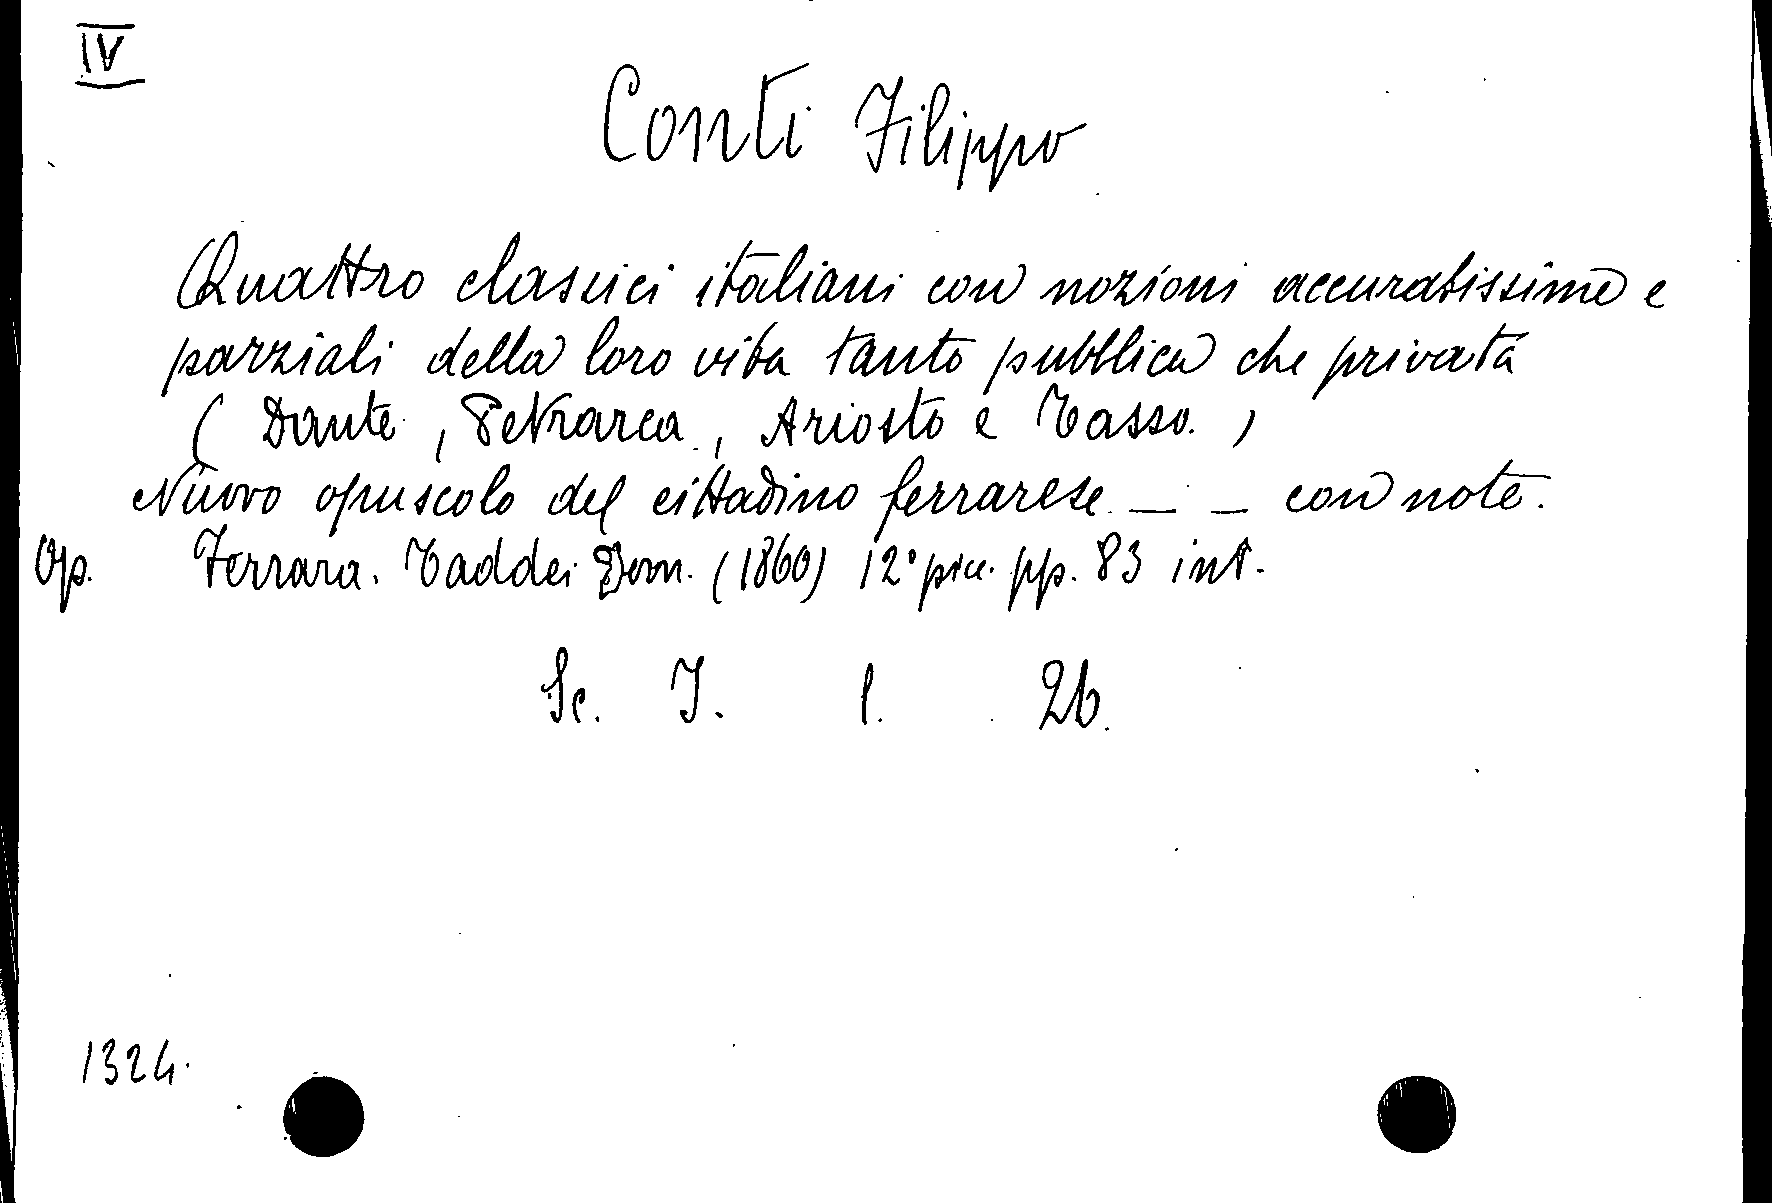 IV
Conti Filippo
Quattro classici italiani con nozioni accuratissime e
parziali della loro vita tanto pubblica che privata
( Dante, Petrarca, Ariosto e Tasso. )
Nuovo opuscolo del cittadino ferrarese _ _ con note.
Op. Ferrara. Taddei Dom. (1860) 12° picc. pp. 83 int.
Sc. I. l. 26.
1324.